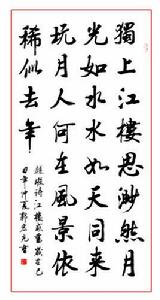 獨上江樓思渺然月
光如水水如天同來
玩月人何在風景依
稀似去年
趙嘏詩江樓感舊歲在己
丑年仲夏郭書